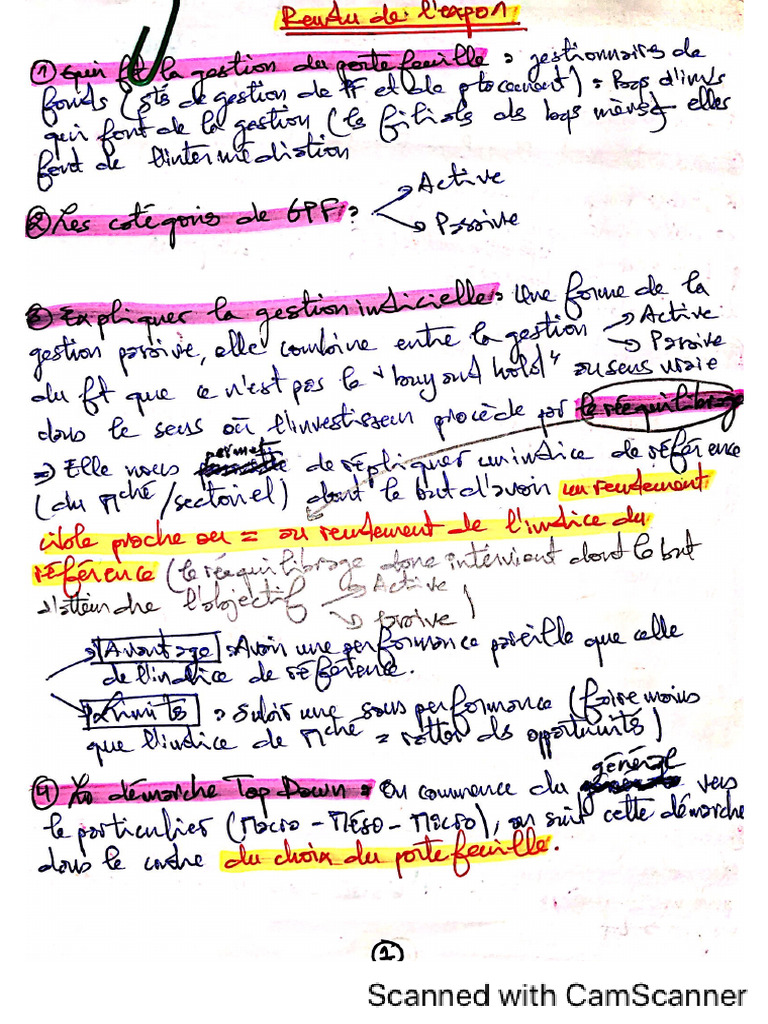 Rendu de l'expo 1
① Qui ft la gestion du porte feuille : gestionnaires de
fonds (stés de gestion de PF et de placement) = Bqs d'invs
qui font de la gestion (les filials des bqs mères) elles
font de l'intermédiation
② Les catégoris de GPF : → Active
→ Passive
③ Expliquer la gestion indicielle : Une forme de la
gestion passive, elle combine entre la gestion → Active
→ Passive
du ft que ce n'est pas le "buy and hold" au sens vraie
dans le sens où l'investisseur procède par le rééquilibrage
⇒ Elle nous permet de répliquer un indice de référence
(du mché / sectoriel) dont le but d'avoir un rendement
cible proche ou = au rendement de l'indice du
référence (le rééquilibrage donc intervient dont le but
d'atteindre l'objectif → Active
→ passive)
Avantage : Avoir une performance pareille que celle
de l'indice de référence.
Limits : Subir une sous performance (faire moins
que l'indice de mché = ratter des opportunités)
④ La démarche Top Down : On commence du général vers
le particulier (Macro - Méso - Micro), on suit cette démarche
dans le cadre du choix du porte feuille.
①
Scanned with CamScanner